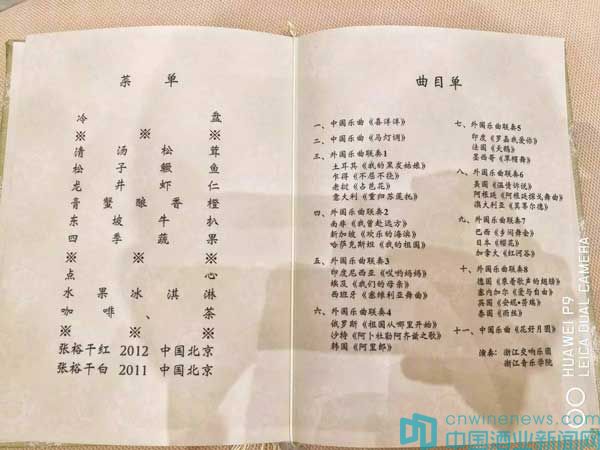 菜 单
冷 盘
※ ※ ※
清 汤 松 茸
松 子 鳜 鱼
龙 井 虾 仁
膏 蟹 酿 香 橙
东 坡 牛 扒
四 季 蔬 果
※ ※ ※
点 心
水 果 冰 淇 淋
咖 啡 、 茶
※ ※ ※
张裕干红 2012 中国北京
张裕干白 2011 中国北京
曲目单
一、中国乐曲《喜洋洋》
二、中国乐曲《马灯调》
三、外国乐曲联奏1
土耳其《我的黑发姑娘》
乍得《不屈不挠》
老挝《占芭花》
意大利《重归苏莲托》
四、外国乐曲联奏2
南非《我曾赴远方》
新加坡《欢乐的海滨》
哈萨克斯坦《我的祖国》
五、外国乐曲联奏3
印度尼西亚《哎哟妈妈》
埃及《我们的母亲》
西班牙《塞维利亚舞曲》
六、外国乐曲联奏4
俄罗斯《祖国从哪里开始》
沙特《阿卜杜勒阿齐兹之歌》
韩国《阿里郎》
七、外国乐曲联奏5
印度《罗摩我爱你》
法国《天鹅》
墨西哥《草帽舞》
八、外国乐曲联奏6
美国《温情诉说》
阿根廷《阿根廷探戈舞曲》
澳大利亚《莫蒂尔德》
九、外国乐曲联奏7
巴西《乡间舞会》
日本《樱花》
加拿大《红河谷》
十、外国乐曲联奏8
德国《乘着歌声的翅膀》
塞内加尔《爱与自由》
英国《安妮·劳瑞》
泰国《雨丝》
十一、中国乐曲《花好月圆》
演奏：浙江交响乐团
浙江音乐学院
HUAWEI P9
LEICA DUAL CAMERA
cnwinenews.com
中国酒业新闻网